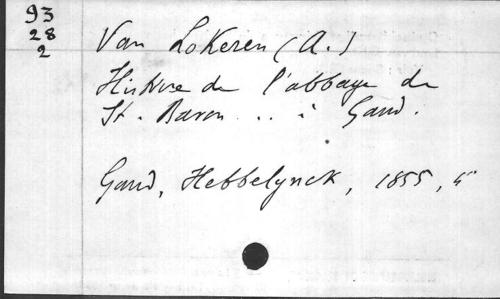 93
28
2
Van Lokeren (A.)
Histoire de l'abbaye de
St. Bavon ... à Gand.
Gand, Hebbelynck, 1855, 4°